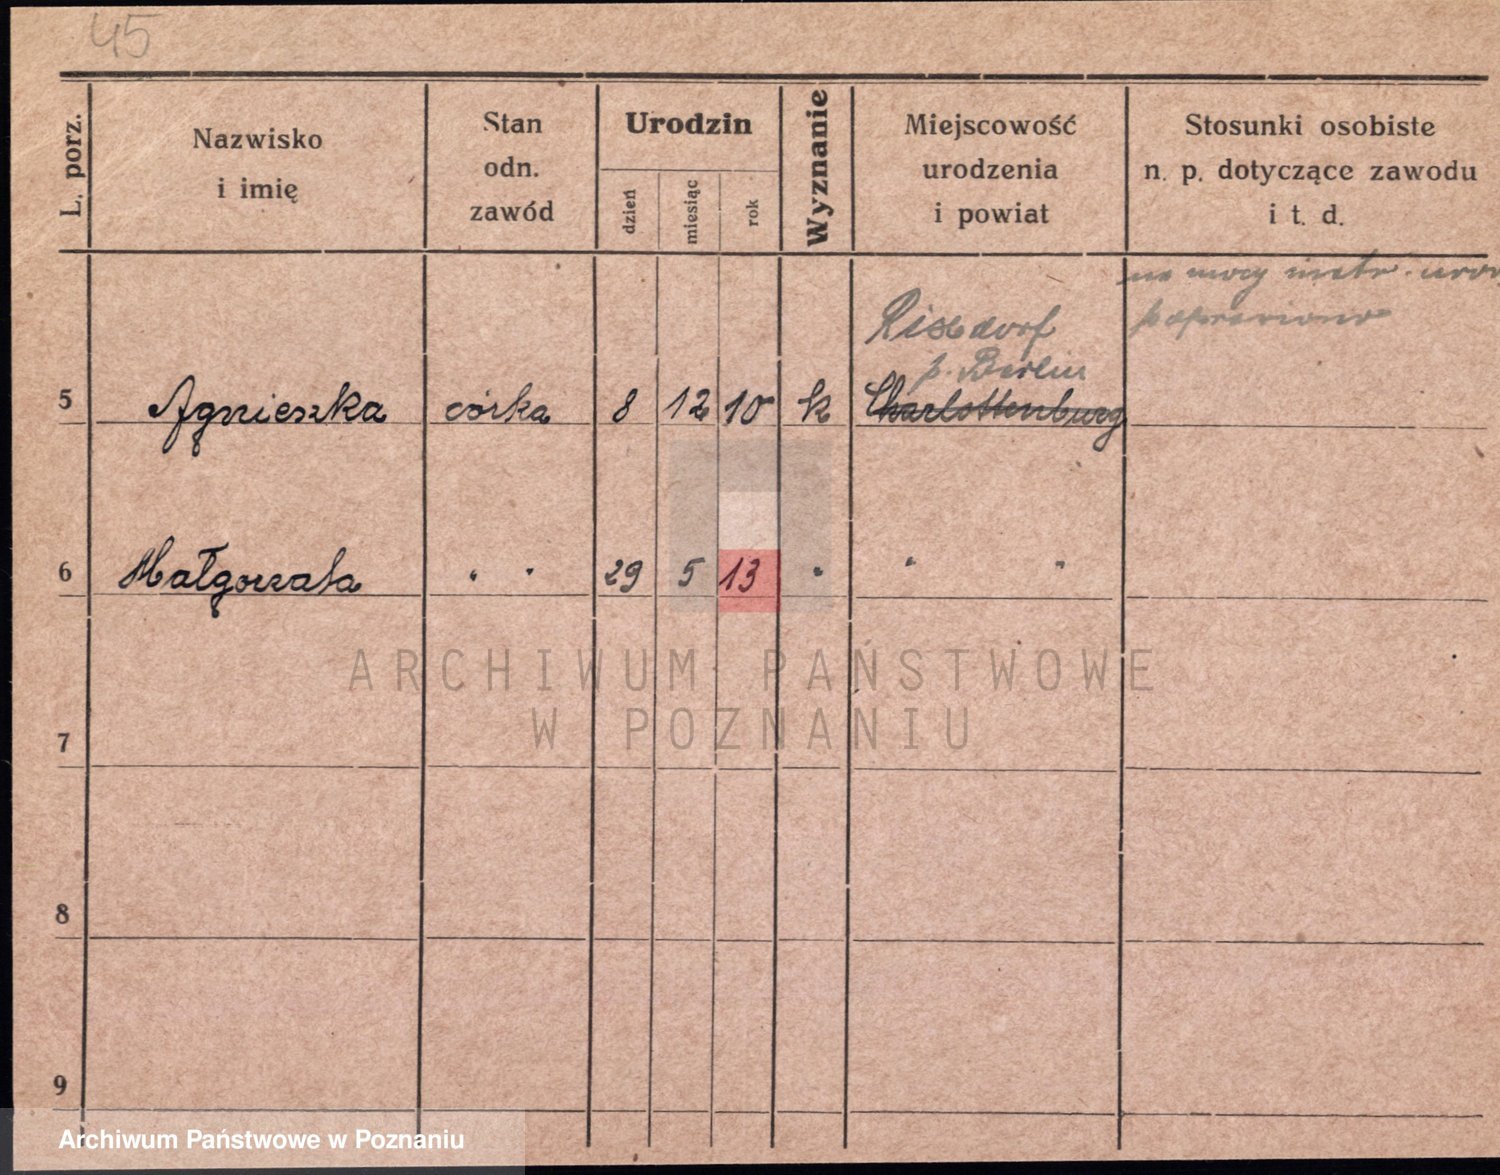 45
L. porz.
Nazwisko
i imię
Stan
odn.
zawód
Urodzin
dzień
miesiąc
rok
Wyznanie
Miejscowość
urodzenia
i powiat
Stosunki osobiste
n. p. dotyczące zawodu
i t. d.
na mocy metr. urod
poprawiono
Rixdorf
p. Berlin
5 Agnieszka córka 8 12 10 k Charlottenburg
6 Małgorzata " " 29 5 13 " " "
ARCHIWUM PAŃSTWOWE
W POZNANIU
7
8
9
Archiwum Państwowe w Poznaniu